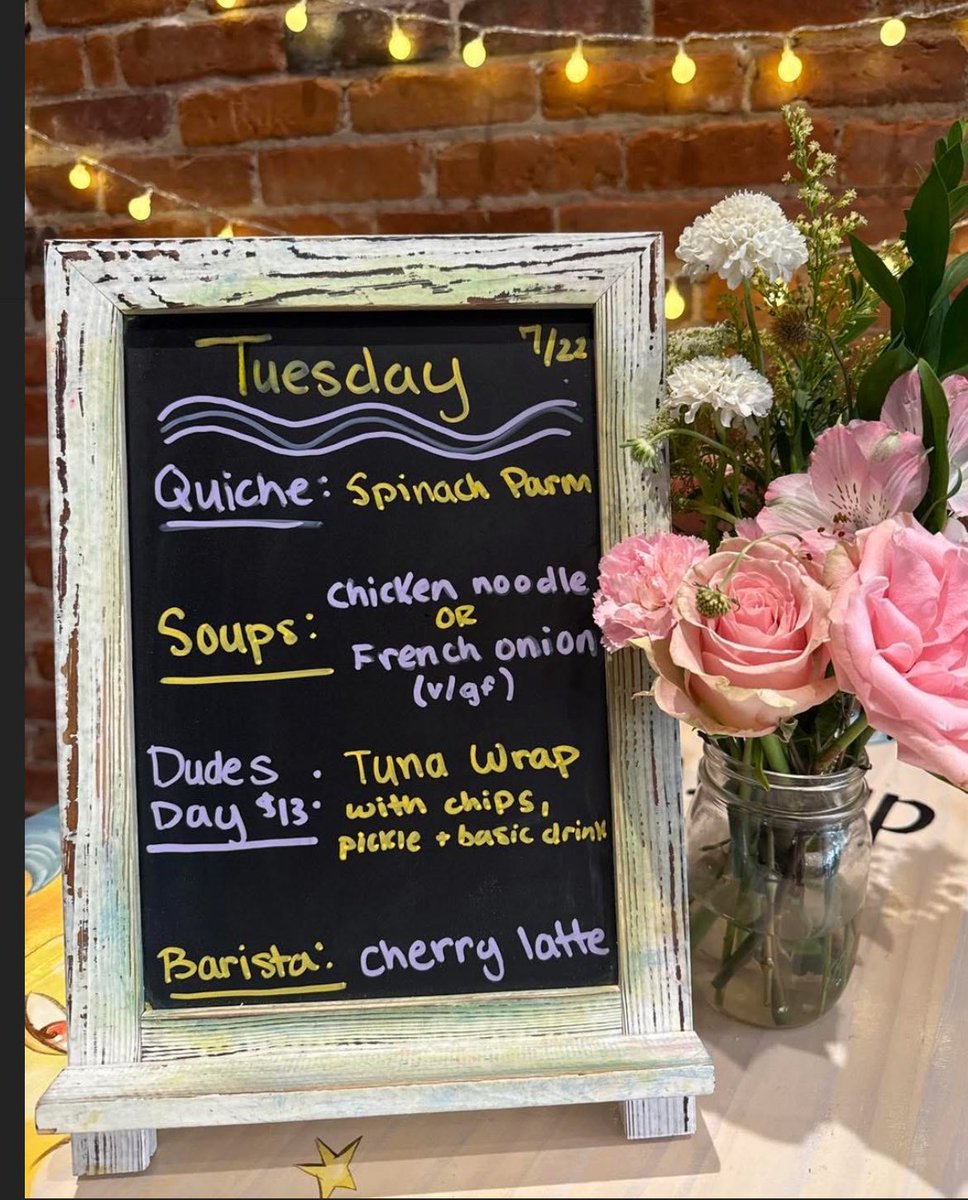 Tuesday 7/22
Quiche: Spinach Parm
Soups: chicken noodle
OR
French onion
(v/gf)
Dudes Day $13: Tuna Wrap
with chips,
pickle + basic drink
Barista: cherry latte